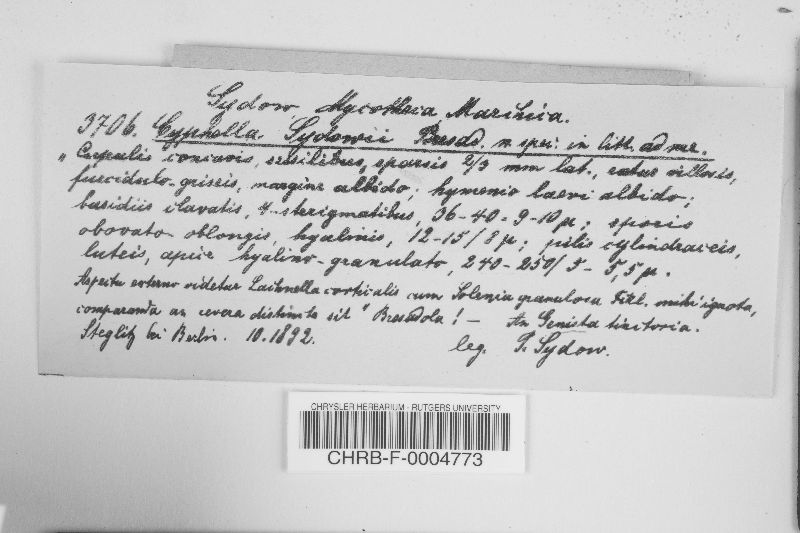 Sydow, Mycotheca Marchica.
3706. Cyphella Sydowii Bresad. n. spec. in litt. ad me.
„Cupulis concavis, sessilibus, sparsis 2/3 mm lat., extus villosis,
fuscidulo-griseis, margine albido; hymenio laevi albido;
basidiis clavatis, 4-sterigmatibus, 36-40=9-10 µ; sporis
obovato oblongis, hyalinis, 12-15/8 µ; pilis cylindraceis,
luteis, apice hyalino-granulato, 240-250/5-5,5 µ.
Aspectu externo videtur Lachnella corticalis cum Solenia granulosa Fckl. mihi ignota,
comparanda an revera distincta sit" Bresadola! — An Genista tinctoria.
Steglitz bei Berlin. 10.1892. leg. P. Sydow.
CHRYSLER HERBARIUM - RUTGERS UNIVERSITY
CHRB-F-0004773